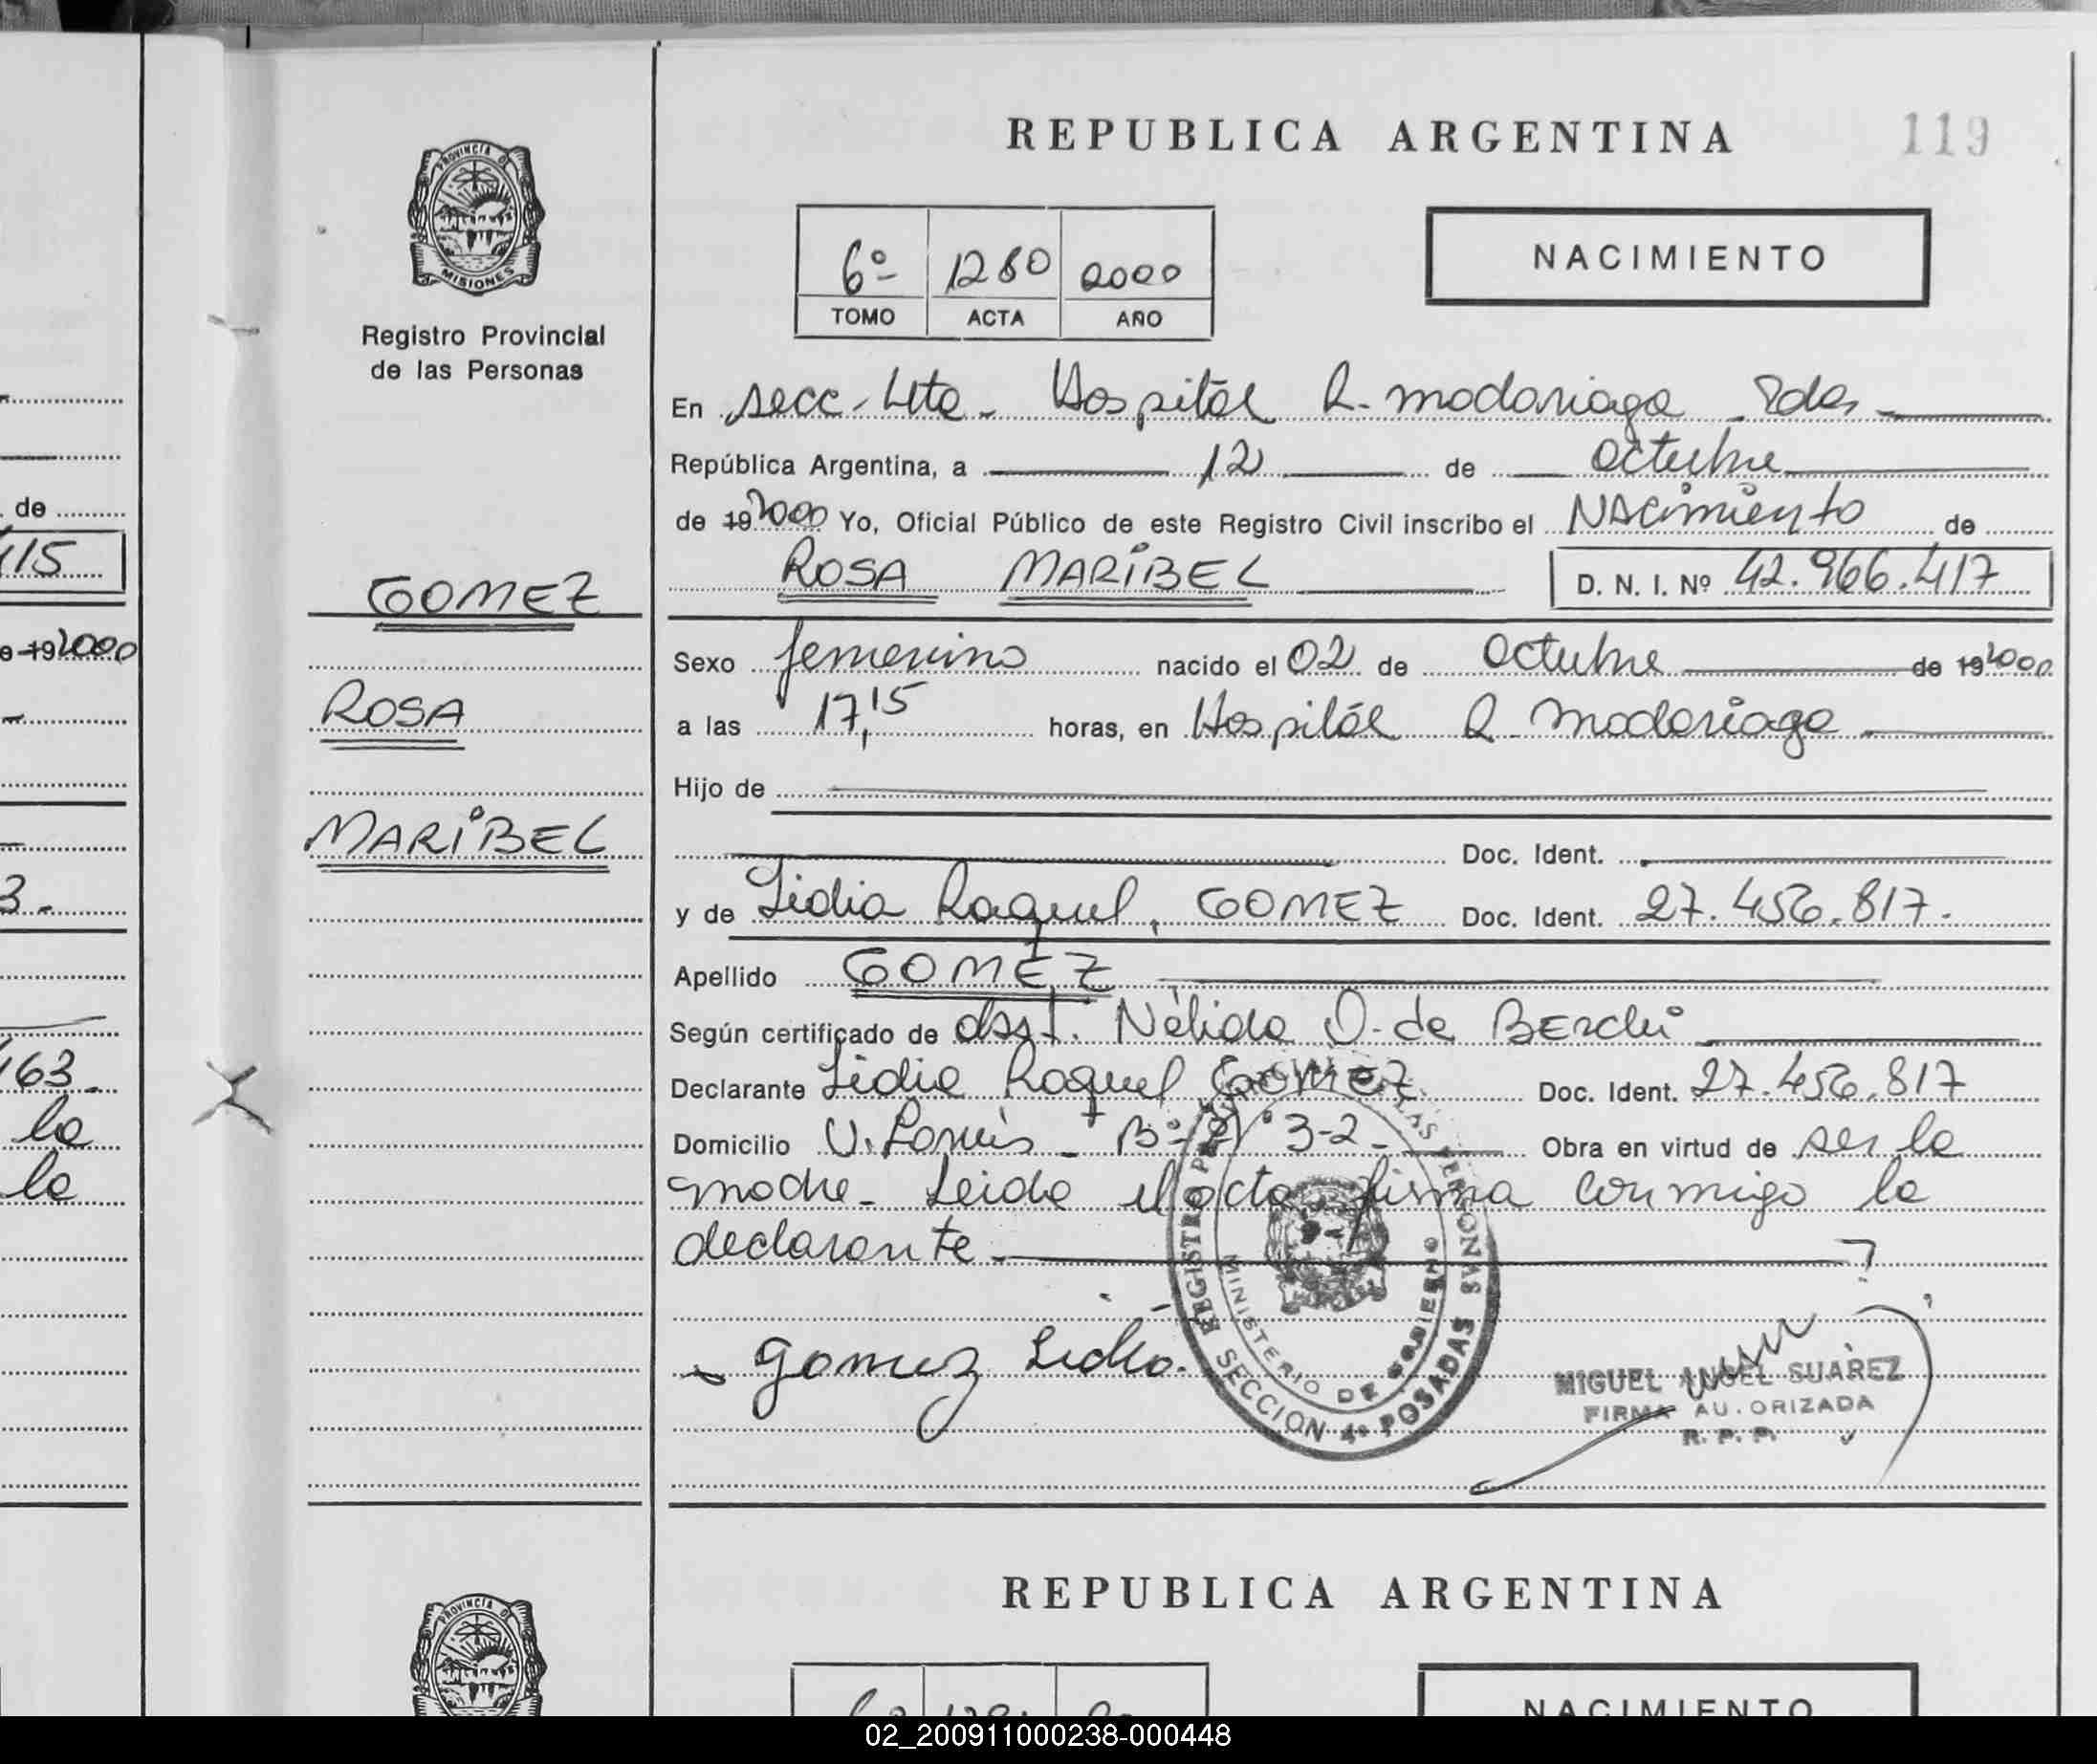 REPUBLICA ARGENTINA
119
PROVINCIA DE
MISIONES
Registro Provincial
de las Personas
6º 1280 2000
TOMO ACTA AÑO
NACIMIENTO
En secc. 4ta - Hospital R. Madariaga Pdas -
República Argentina, a 12 de Octubre
de 19 2000 Yo, Oficial Público de este Registro Civil inscribo el NACimiento de
ROSA MARIBEL D. N. I. Nº 42.966.417
GOMEZ
ROSA
MARIBEL
Sexo femenino nacido el 02 de Octubre de 19 2000
a las 17,15 horas, en Hospital R. Madariaga
Hijo de
Doc. Ident.
y de Lidia Raquel, GOMEZ Doc. Ident. 27.456.817.
Apellido GOMEZ
Según certificado de obst. Nélida O. de BErchi
Declarante Lidia Raquel GOMEZ Doc. Ident. 27.456.817
Domicilio Bº Nº 3-2 - Obra en virtud de ser la
madre - Leida el acta firma conmigo la
declarante -
Gomez Lidia.
REGISTRO PROVINCIAL DE LAS PERSONAS
MINISTERIO DE GOBIERNO
SECCION 4º POSADAS
MIGUEL ANGEL SUAREZ
FIRMA AU.ORIZADA
R. P. P.
de
115
19 2000
3 -
163 -
la
la
REPUBLICA ARGENTINA
PROVINCIA DE
NACIMIENTO
02_200911000238-000448